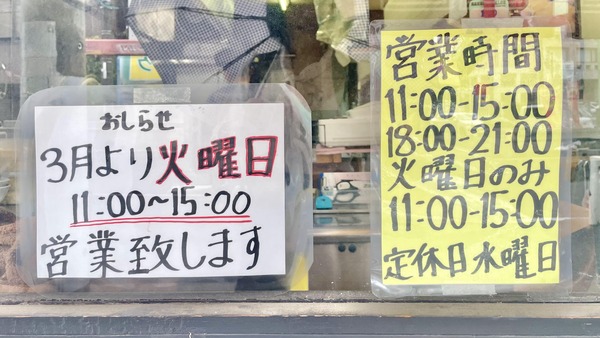 おしらせ
3月より火曜日
11:00〜15:00
営業致します
営業時間
11:00-15:00
18:00-21:00
火曜日のみ
11:00-15:00
定休日水曜日